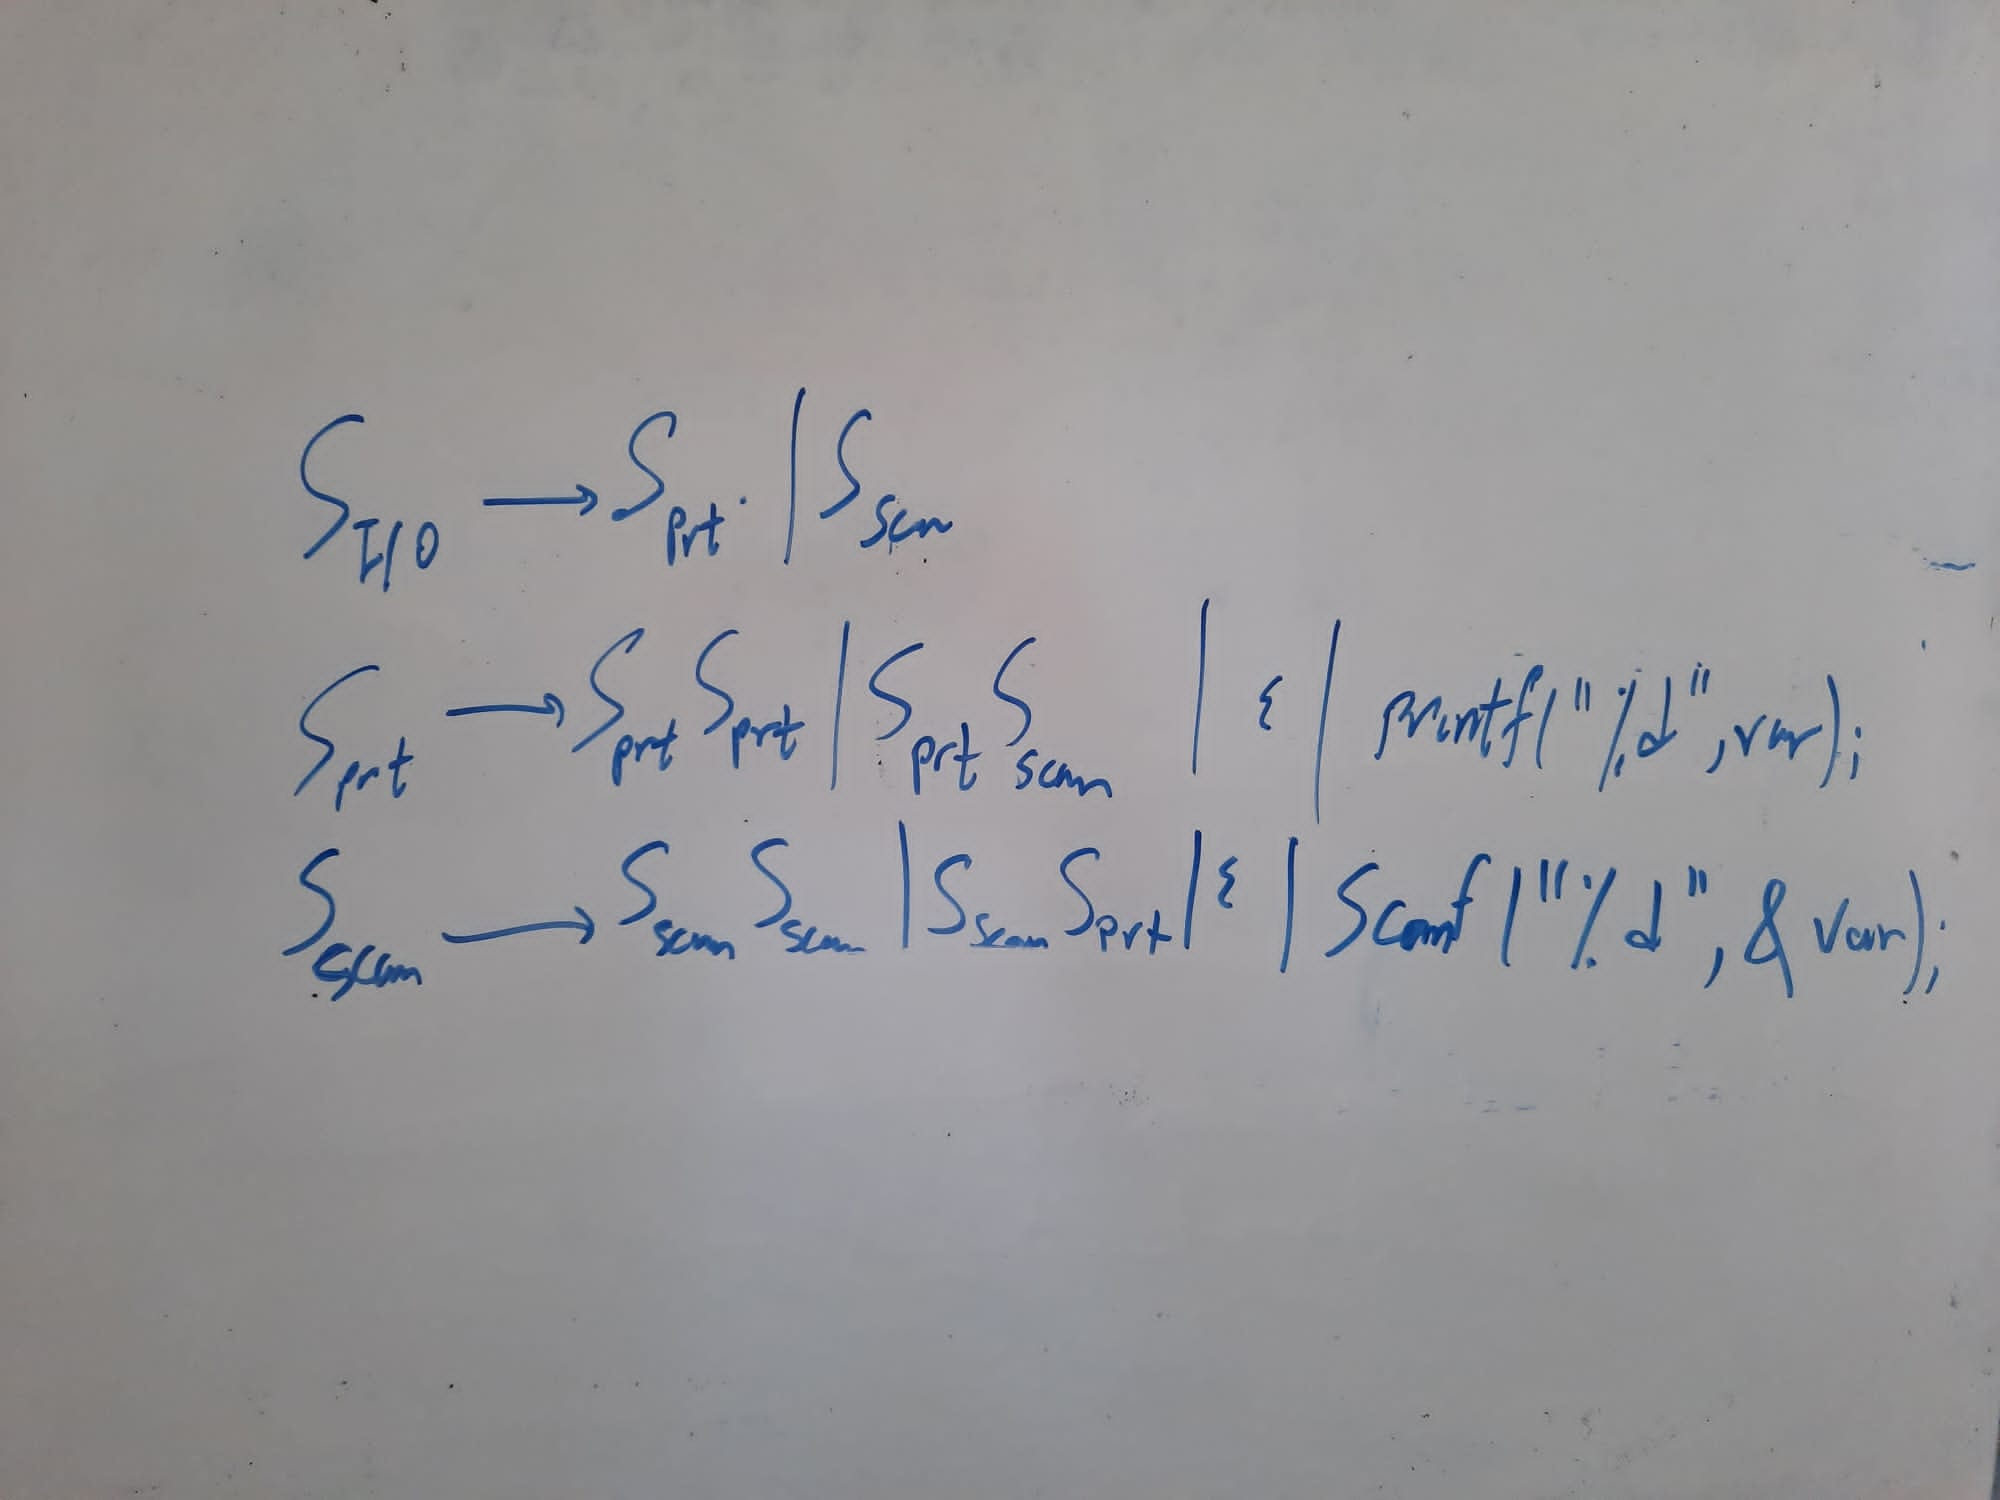 S I/O → S prt | S scan
S prt → S prt S prt | S prt S scan | ε | printf("%d", var);
S scan → S scan S scan | S scan S prt | ε | Scanf("%d", & var);